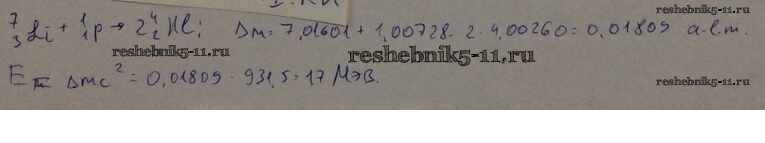 ⁷₃Li + ¹₁p → 2⁴₂He; Δm = 7,01601 + 1,00728 - 2 · 4,00260 = 0,01809 а.е.м.
reshebnik5-11.ru
reshebnik5-11.ru
reshebnik5-11.ru
E = Δmc² = 0,01809 · 931,5 = 17 МэВ.